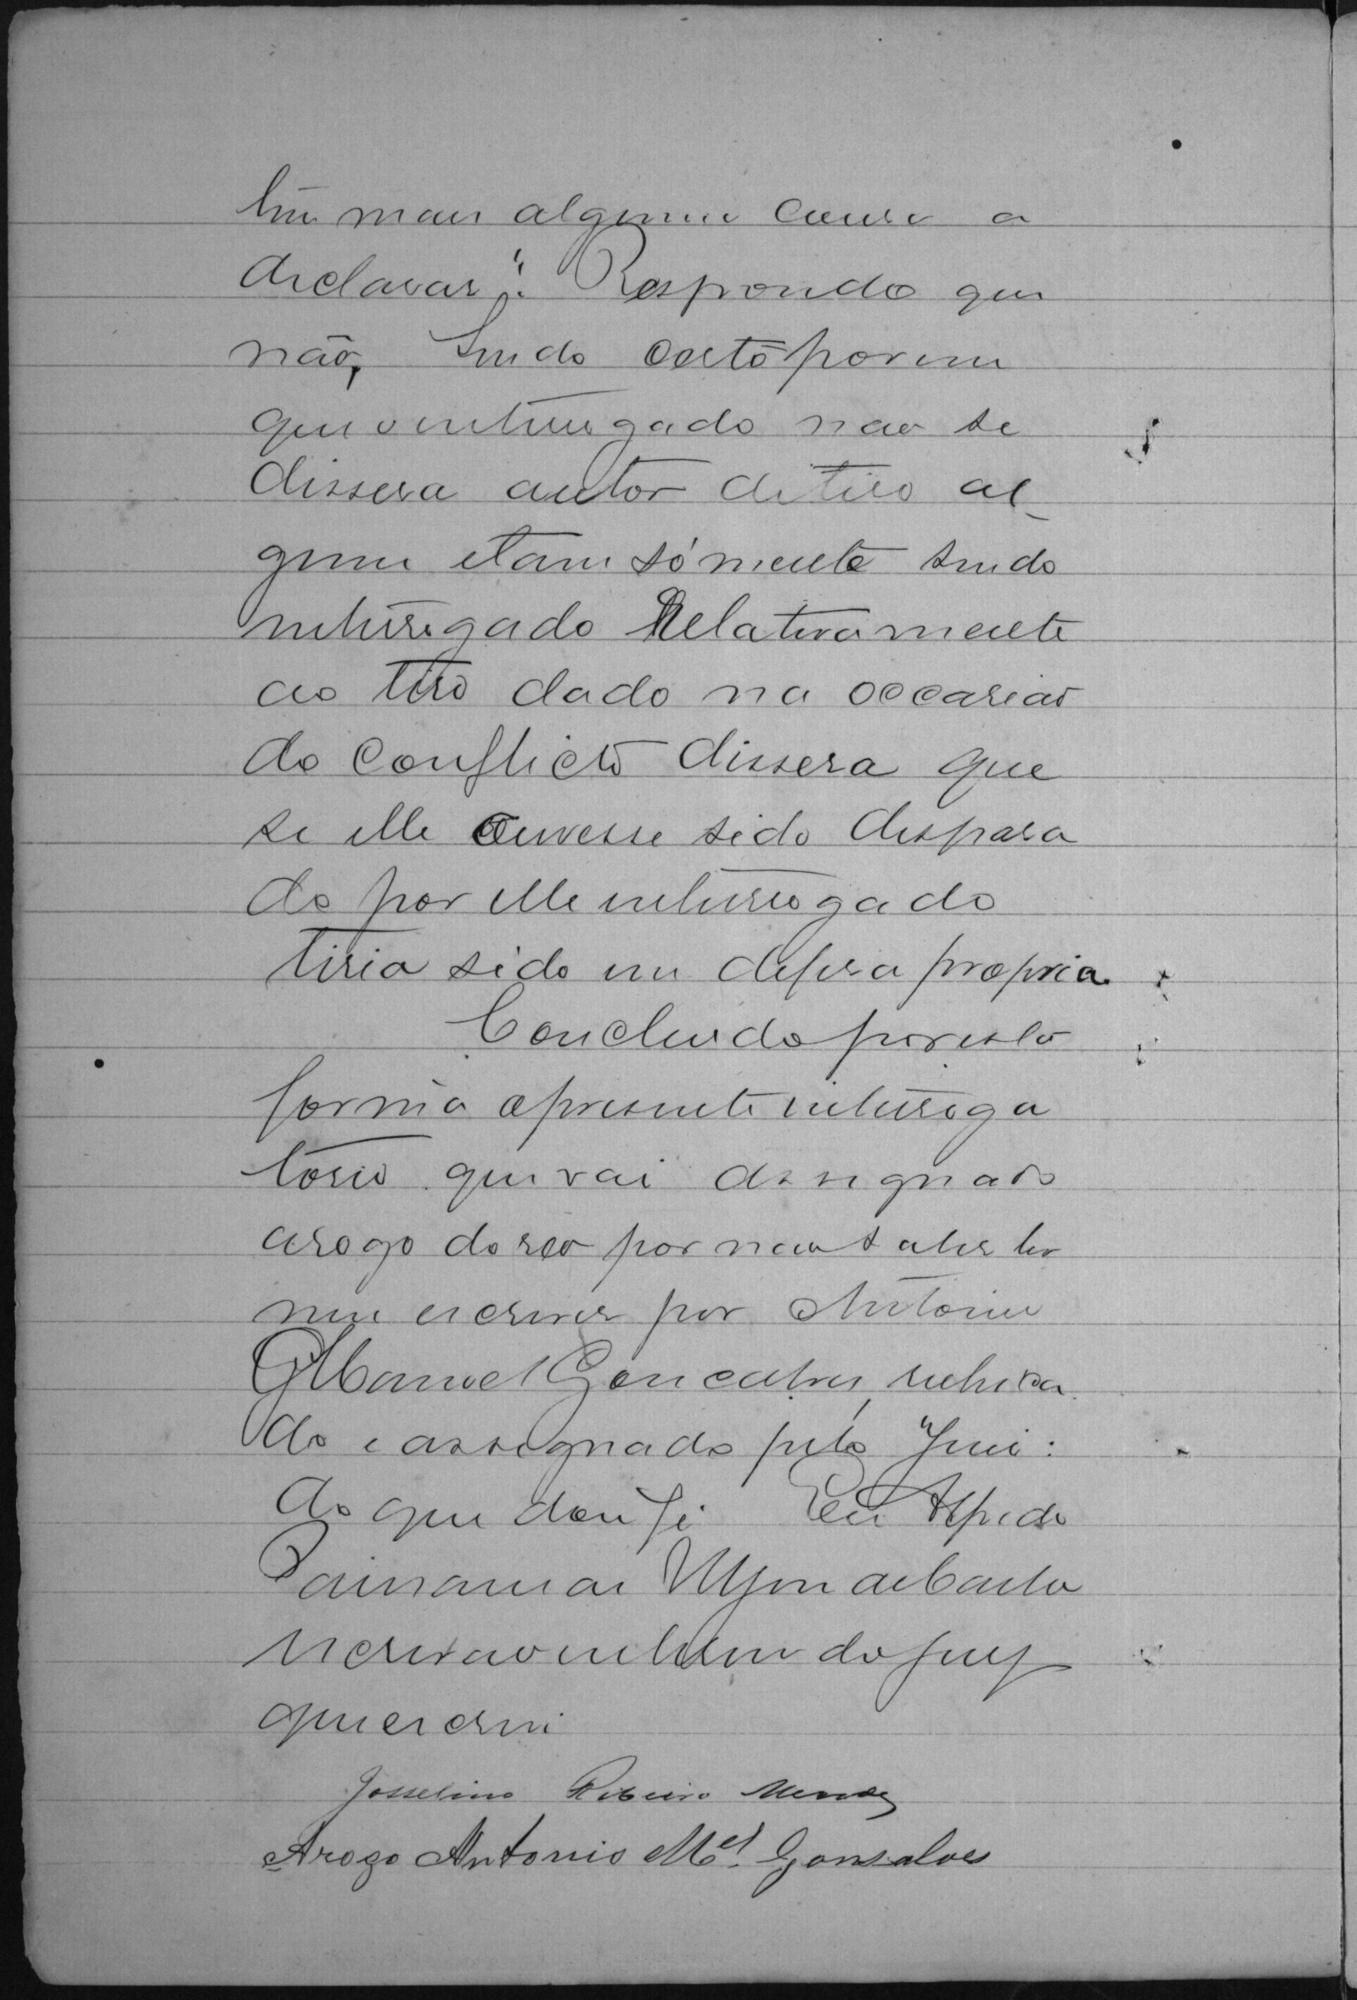 tem mais alguma cousa a
declarar". Respondo que
não, sendo certo porem
que o interrogado nao se
dissera autor de tiro al-
gum e tam sómente sendo
interrogado Relativamente
ao tiro dado na occasiao
do conflicto dissera que
se elle ouvesse sido dispara
do por elle interrogado
tiria sido em defesa propria.
Concluido por esta
forma o presente interroga
torio que vai assignado
arogo do reo por nao saber ler
nem escrever por Antonio
Manoel Goncalves, rubrica
do e assignado pelo Juiz:
do que dou fé Eu
escrivao interino do Juiz
que escrevi
Josselino Ribeiro Mendes
Arogo Antonio Mel. Gonsalves